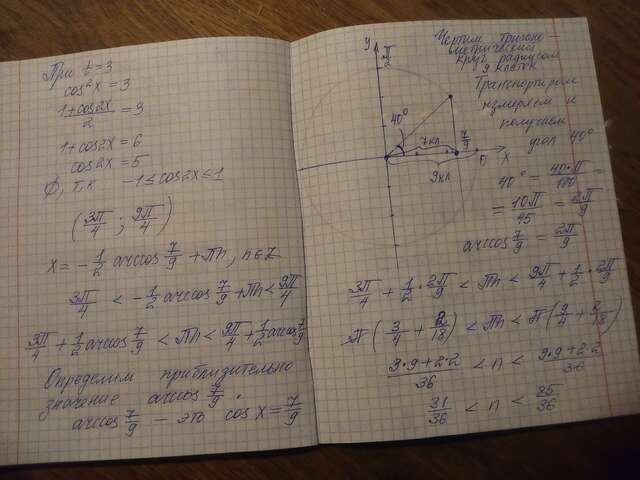 При t = 3
cos²x = 3
(1+cos2x)/2 = 3
1+cos2x = 6
cos2x = 5
∅, т.к -1≤cos2x≤1
(3π/4 ; 9π/4)
x = -1/2 arccos 7/9 + πn, n∈Z
3π/4 < -1/2 arccos 7/9 + πn < 9π/4
3π/4 + 1/2 arccos 7/9 < πn < 9π/4 + 1/2 arccos 7/9
Определим приблизительно
значение arccos 7/9
arccos 7/9 – это cos x = 7/9
y
π/2
40°
7кл
7/9
0
x
9кл
Чертим тригоно-
метрический
круг радиусом
9 клеток
Транспортиром
измеряем и
получаем
угол 40°
40° = 40·π/180 =
= 10π/45 = 2π/9
arccos 7/9 = 2π/9
3π/4 + 1/2 · 2π/9 < πn < 9π/4 + 1/2 · 2π/9
π(3/4 + 2/18) < πn < π(9/4 + 2/18)
(3·9+2·2)/36 < n < (9·9+2·2)/36
31/36 < n < 85/36